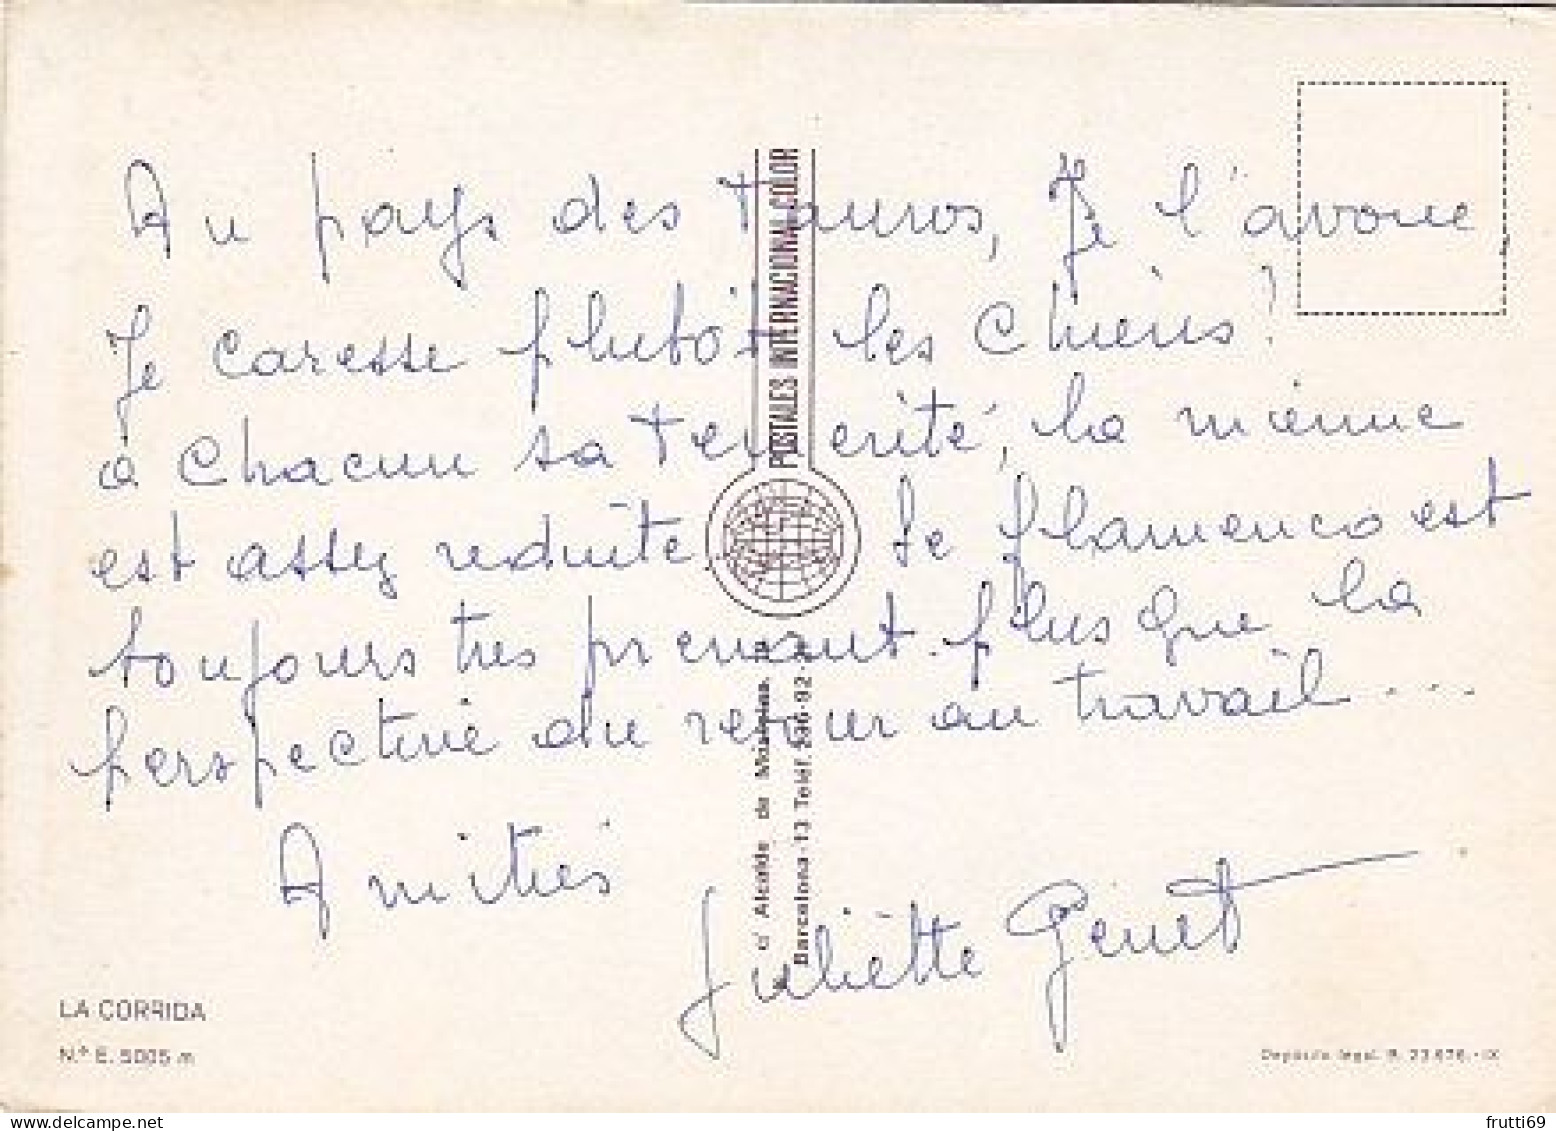 Au pays des Tauros, Je l'avoue,
Je Caresse plutôt les Chiens!
à Chacun sa Temerité, la mienne
est assez reduite. Le flamenco est
toujours tres prenant. plus que la
perspective du retour au travail....
Amitiés
Juliette Genet
POSTALES INTERNACIONAL COLOR
c/ Alcalde de Móstoles,
Barcelona-13 Teléf. 236-92-
LA CORRIDA
N.º E. 5005 m
Depósito legal. B. 23.676.-IX
frutti69